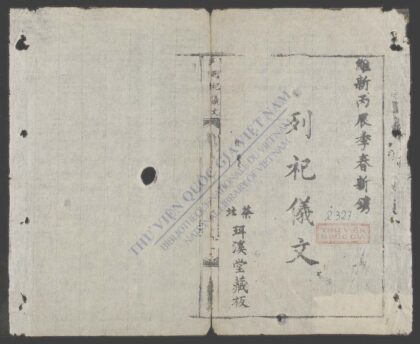 維新丙辰季春新鐫
列祀儀文
珥溪堂藏板
2327
THƯ VIỆN
QUỐC GIA
列祀儀文
THƯ VIỆN QUỐC GIA VIỆT NAM
BIBLIOTHÈQUE NATIONALE DU VIETNAM
NATIONAL LIBRARY OF VIETNAM